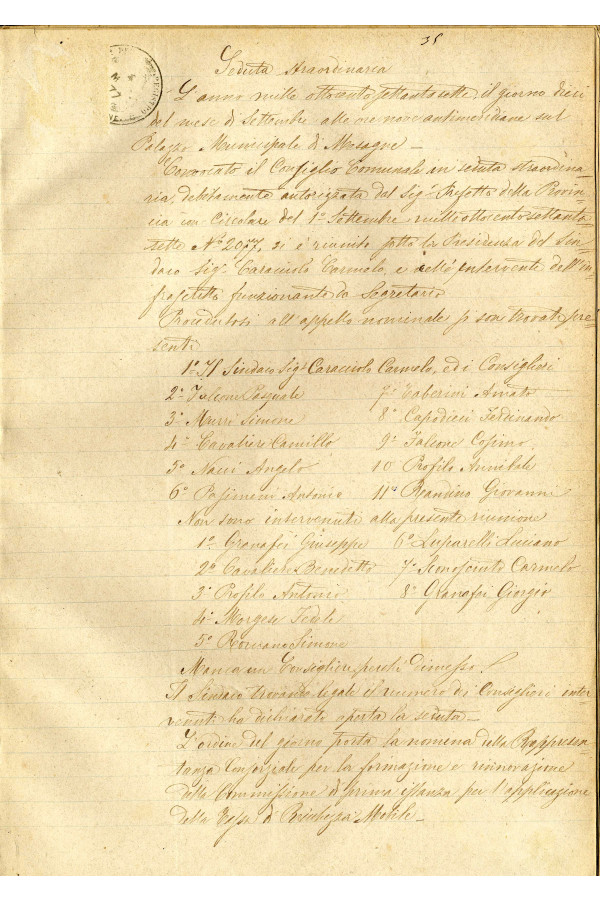 35
Seduta straordinaria
L'anno mille ottocento settantasette il giorno dieci
del mese di Settembre alle ore nove antimeridiane sul
Palazzo Municipale di Mesagne —
Convocato il Consiglio Comunale in seduta straordina-
ria, debitamente autorizzata dal Sig.r Prefetto della Provin-
cia con Circolare del 1.º Settembre mille ottocento settanta
sette N.º 2077, si è riunito sotto la Presidenza del Sin-
daco Sig.r Caraciolo Carmelo, e coll'intervento dell'in-
frascritto funzionante da Segretario
Procedutosi all'appello nominale si son trovati pre-
senti
1.º Il Sindaco Sig.r Caraciolo Carmelo, ed i Consiglieri
2.º Falcone Pasquale 7.º Taberini Amato
3.º Murri Simone 8.º Capodieci Ferdinando
4.º Cavaliere Camillo 9.º Falcone Cosimo
5.º Nacci Angelo 10 Profilo Annibale
6.º Pasimeni Antonio 11.º Beandino Giovanni
Non sono intervenuti alla presente riunione
1.º Granafei Giuseppe 6.º Luparelli Luciano
2.º Cavaliere Benedetto 7.º Scmoscinto Carmelo
3.º Profilo Antonio 8.º Granafei Giorgio
4.º Morgese Fedele
5.º Romano Simone
Manca un Consigliere perchè dimesso
Il Sindaco trovando legale il numero di Consiglieri inter-
venuti ha dichiarato aperta la seduta —
L'ordine del giorno porta la nomina della Rappresen-
tanza Consorziale per la formazione e rinnovazione
della Commissione di prima istanza per l'applicazione
della Tassa di Ricchezza Mobile —